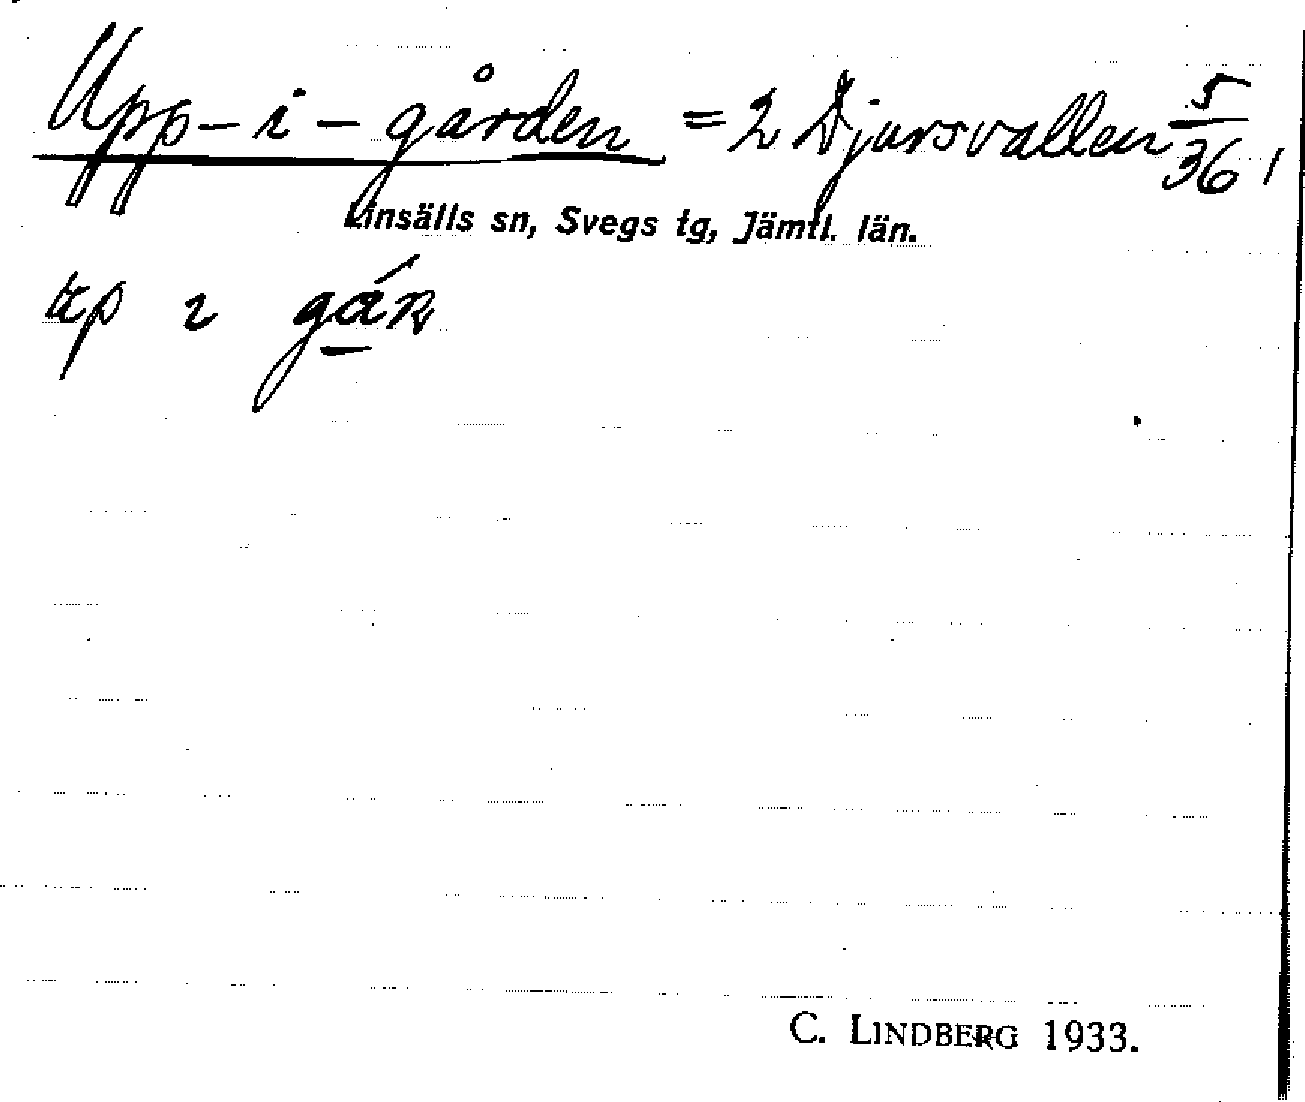 Upp-i-gården = 2 Djursvallen 5/36 1
Linsälls sn, Svegs tg, Jämtl. län.
up ı gárɴ
C. LINDBERG 1933.